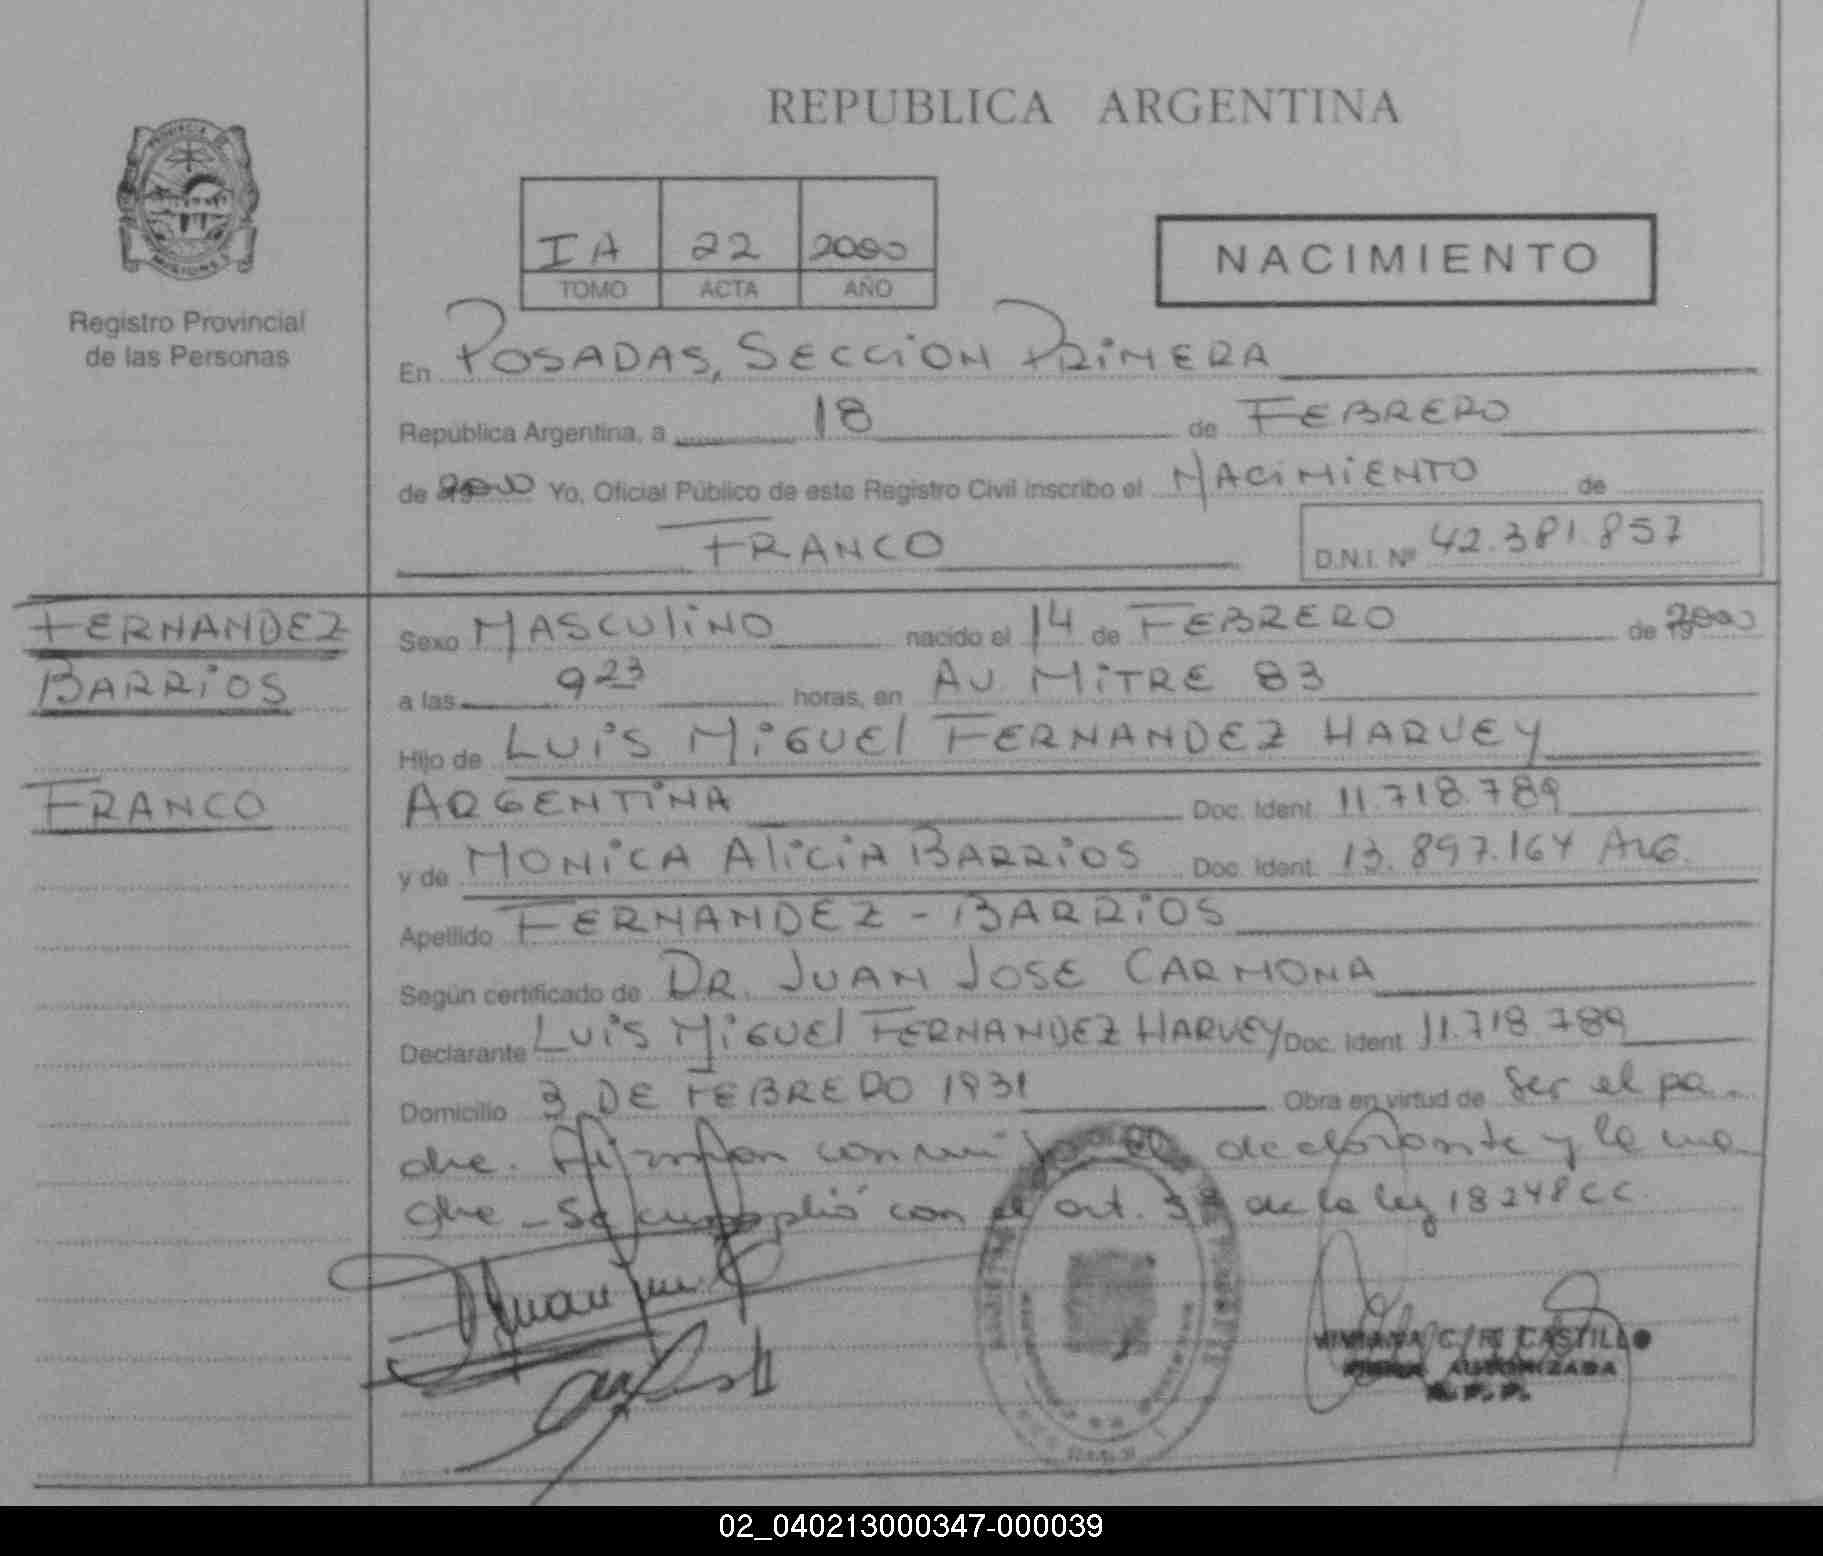 REPUBLICA ARGENTINA
PROVINCIA
MISIONES
Registro Provincial
de las Personas
IA 22 2000
TOMO ACTA AÑO
NACIMIENTO
En POSADAS, SECCION PRIMERA
República Argentina, a 18 de FEBRERO
de 2000 Yo, Oficial Público de este Registro Civil inscribo el NACIMIENTO de
FRANCO
D.N.I. Nº 42.381.857
FERNANDEZ
BARRIOS
FRANCO
Sexo MASCULINO nacido el 14 de FEBRERO de 2000
a las 9 23 horas, en AV. MITRE 83
Hijo de LUIS MIGUEL FERNANDEZ HARVEY
ARGENTINA Doc. Ident. 11.718.789
y de MONICA ALICIA BARRIOS Doc. Ident. 13.897.164 ARG.
Apellido FERNANDEZ - BARRIOS
Según certificado de DR. JUAN JOSE CARMONA
Declarante LUIS MIGUEL FERNANDEZ HARVEY Doc. Ident 11.718.789
Domicilio 3 DE FEBRERO 1931 Obra en virtud de ser el pa-
dre. Firman conmigo el declarante y la ma-
dre - Se cumplió con el art. de la ley 18248 CC.
VIVIANA C. R. CASTILLO
FIRMA AUTORIZADA
R.P.P.
02_040213000347-000039